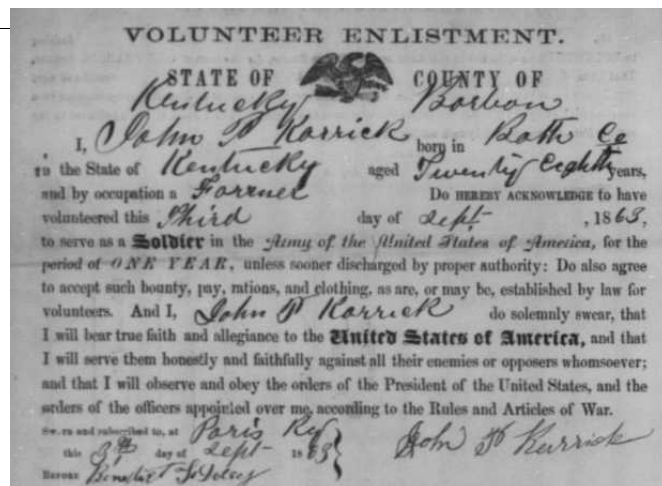 VOLUNTEER ENLISTMENT.
STATE OF COUNTY OF
Kentucky Borbon
I, John P Karrick born in Bath Co
in the State of Kentucky aged Twenty Eighth years,
and by occupation a Farmer Do HEREBY ACKNOWLEDGE to have
volunteered this Third day of Sept , 1863,
to serve as a Soldier in the Army of the United States of America, for the
period of ONE YEAR, unless sooner discharged by proper authority: Do also agree
to accept such bounty, pay, rations, and clothing, as are, or may be, established by law for
volunteers. And I, John P Karrick do solemnly swear, that
I will bear true faith and allegiance to the United States of America, and that
I will serve them honestly and faithfully against all their enemies or opposers whomsoever;
and that I will observe and obey the orders of the President of the United States, and the
orders of the officers appointed over me, according to the Rules and Articles of War.
Sworn and subscribed to, at Paris Ky
this 3rd day of Sept 1863 John P Karrick
BEFORE